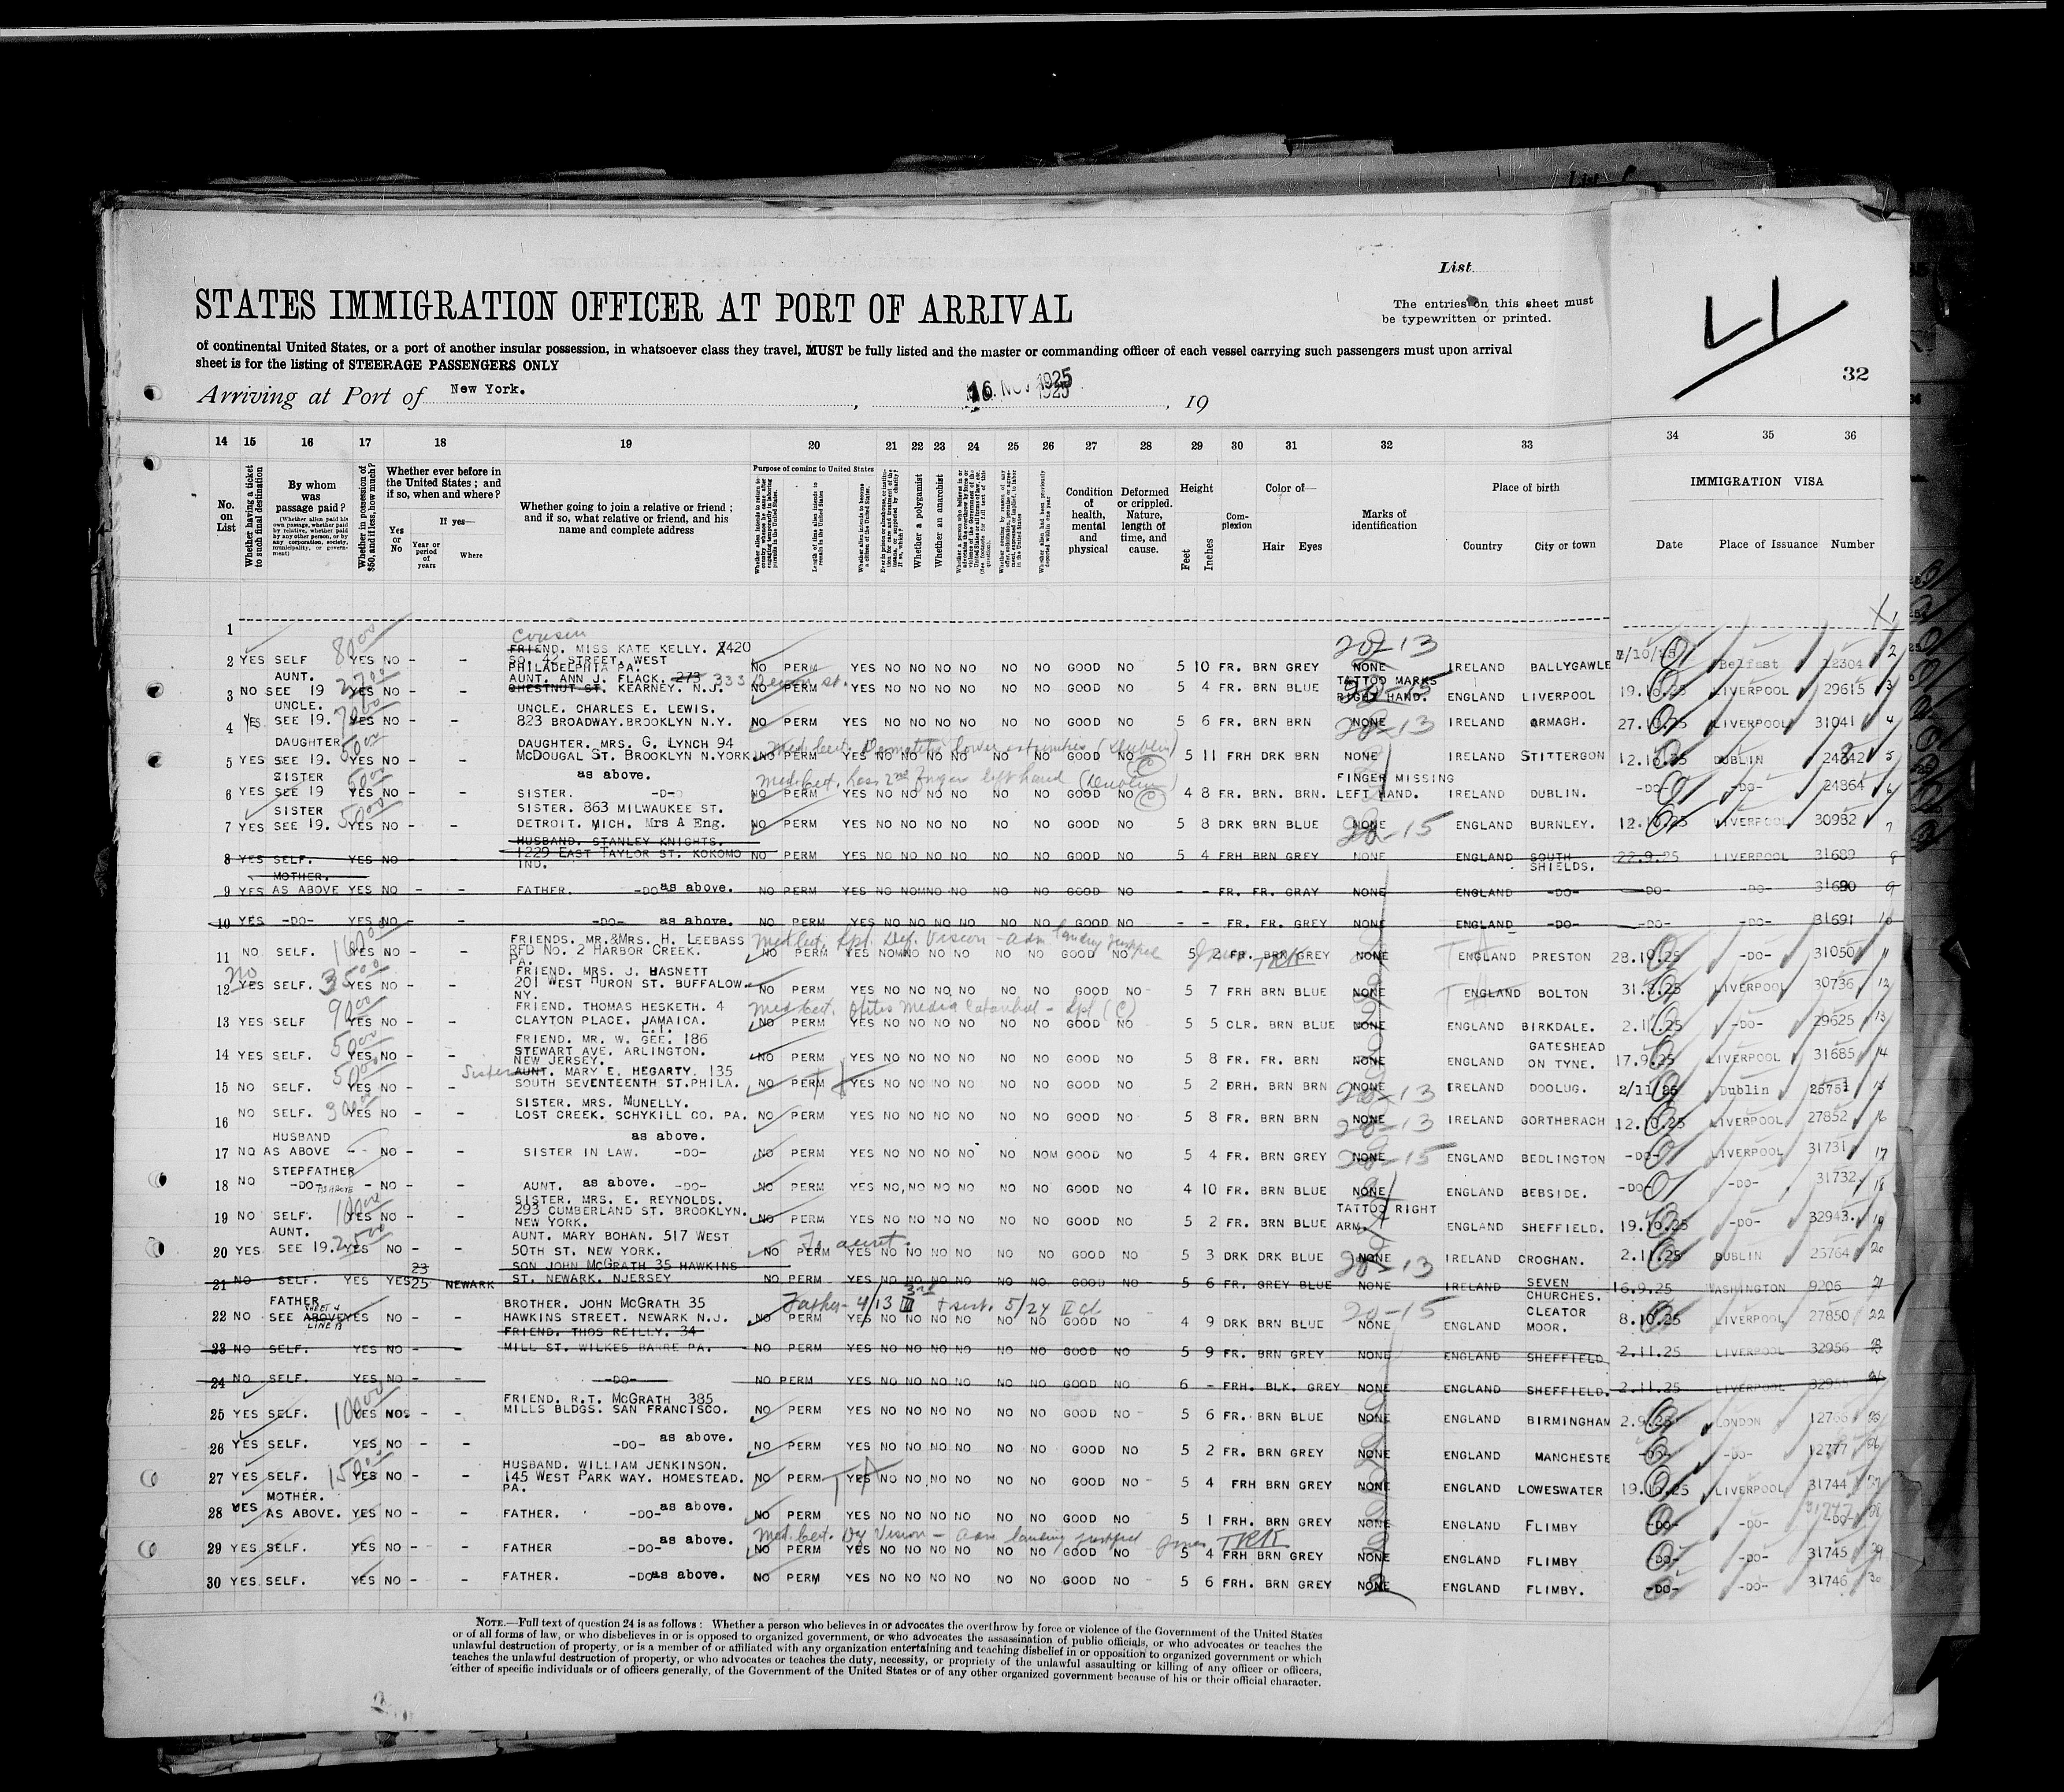 List
STATES IMMIGRATION OFFICER AT PORT OF ARRIVAL
The entries on this sheet must
be typewritten or printed.
of continental United States, or a port of another insular possession, in whatsoever class they travel, MUST be fully listed and the master or commanding officer of each vessel carrying such passengers must upon arrival
sheet is for the listing of STEERAGE PASSENGERS ONLY
32
Arriving at Port of New York. , 16 NOV 1925 , 19
14 15 16 17 18 19 20 21 22 23 24 25 26 27 28 29 30 31 32 33 34 35 36
No. on List
Whether having a ticket to such final destination
By whom was passage paid?
(Whether alien paid his own passage, whether paid by relative, whether paid by any other person, or by any corporation, society, municipality, or government)
Whether in possession of $50, and if less, how much?
Whether ever before in the United States; and if so, when and where?
Yes or No
If yes—
Year or period of years
Where
Whether going to join a relative or friend; and if so, what relative or friend, and his name and complete address
Purpose of coming to United States
Length of time alien intends to remain in the United States
Whether alien intends to become a citizen of the United States.
Whether a polygamist
Whether an anarchist
Condition of health, mental and physical
Deformed or crippled. Nature, length of time, and cause.
Height
Feet
Inches
Complexion
Color of—
Hair Eyes
Marks of identification
Place of birth
Country City or town
IMMIGRATION VISA
Date Place of Issuance Number
1
Cousin
2 YES SELF 80.00 YES NO - - FRIEND. MISS KATE KELLY. 2420 SO. 42 STREET. WEST PHILADELPHIA PA. NO PERM YES NO NO NO NO NO NO GOOD NO 5 10 FR. BRN GREY NONE 20-13 IRELAND BALLYGAWLE /10/25 Belfast 12304 2
3 NO AUNT. SEE 19 YES NO - - AUNT. ANN J. FLACK. 273 CHESTNUT ST. 333 Devon st. KEARNEY. N.J. NO PERM YES NO NO NO NO NO NO GOOD NO 5 4 FR. BRN BLUE TATTOO MARKS RIGHT HAND. 20-15 ENGLAND LIVERPOOL 19.10.25 LIVERPOOL 29615 3
4 YES UNCLE. SEE 19. 70.00 YES NO - - UNCLE. CHARLES E. LEWIS. 823 BROADWAY.BROOKLYN N.Y. NO PERM YES NO NO NO NO NO NO GOOD NO 5 6 FR. BRN BRN NONE 20-13 IRELAND ARMAGH. 27.10.25 LIVERPOOL 31041 4
5 YES DAUGHTER SEE 19. 50.00 YES NO - - DAUGHTER. MRS. G. LYNCH 94 McDOUGAL ST. BROOKLYN N.YORK. NO PERM YES NO NO NO NO NO NO GOOD NO 5 11 FRH DRK BRN NONE IRELAND STITTERGON 12.10.25 DUBLIN 24842 5
Med. Cert. Dermatitis lower extremities (Dublin) C
6 YES SISTER SEE 19 50.00 YES NO - - SISTER. -DO- as above. NO PERM YES NO NO NO NO NO NO GOOD NO 4 8 FR. BRN. BRN. FINGER MISSING LEFT HAND. IRELAND DUBLIN. -DO- -DO- 24864 6
Med. Cert. Loss 2nd finger left hand (Dublin) C
7 YES SISTER SEE 19. 50.00 YES NO - - SISTER. 863 MILWAUKEE ST. DETROIT. MICH. Mrs A Eng. NO PERM YES NO NO NO NO NO NO GOOD NO 5 8 DRK BRN BLUE NONE 20-15 ENGLAND BURNLEY. 12.10.25 LIVERPOOL 30982 7
8 YES SELF. YES NO - - HUSBAND. STANLEY KNIGHTS. 1229 EAST TAYLOR ST. KOKOMO IND. NO PERM YES NO NO NO NO NO NO GOOD NO 5 4 FRH BRN GREY NONE ENGLAND SOUTH SHIELDS. 22.9.25 LIVERPOOL 31689 8
9 YES MOTHER. AS ABOVE YES NO - - FATHER. -DO- as above. NO PERM YES NO NO NO NO NO NO GOOD NO - - FR. FR. GRAY NONE ENGLAND -DO- -DO- -DO- 31690 9
10 YES -DO- YES NO - - -DO- as above. NO PERM YES NO NO NO NO NO NO GOOD NO - - FR. FR. GREY NONE ENGLAND -DO- -DO- -DO- 31691 10
11 NO SELF. YES NO - - FRIENDS. MR.&MRS. H. LEEBASS RFD NO. 2 HARBOR CREEK. PA. NO PERM YES NO NO NO NO NO NO GOOD NO 5 2 FR. BRN GREY NONE ENGLAND PRESTON 28.10.25 -DO- 31050 11
12 no YES SELF. 35.00 YES NO - - FRIEND. MRS. J. HASNETT 201 WEST HURON ST. BUFFALOW. NY. NO PERM YES NO NO NO NO NO NO GOOD NO 5 7 FRH BRN BLUE NONE ENGLAND BOLTON LIVERPOOL 30736 12
13 YES SELF 90.00 YES NO - - FRIEND. THOMAS HESKETH. 4 CLAYTON PLACE. JAMAICA. L.I. NO PERM YES NO NO NO NO NO NO GOOD NO 5 5 CLR. BRN BLUE NONE ENGLAND BIRKDALE. 2.11.25 -DO- 29625 13
Med. Cert. Otitis Media Catarrhal - Lpl (C)
14 YES SELF. 50.00 YES NO - - FRIEND. MR. W. GEE. 186 STEWART AVE. ARLINGTON. NEW JERSEY. NO PERM YES NO NO NO NO NO NO GOOD NO 5 8 FR. FR. BRN NONE ENGLAND GATESHEAD ON TYNE. 17.9.25 LIVERPOOL 31685 14
15 NO SELF. 50.00 YES NO - - Sister AUNT. MARY E. HEGARTY. 135 SOUTH SEVENTEENTH ST.PHILA. NO PERM YES NO NO NO NO NO NO GOOD NO 5 2 DRH. BRN BRN NONE 20-13 IRELAND DOOLUG. 2/11/25 Dublin 15
16 NO SELF. YES NO - - SISTER. MRS. MUNELLY. LOST CREEK. SCHYKILL CO. PA. NO PERM YES NO NO NO NO NO NO GOOD NO 5 8 FR. BRN BRN NONE 20-13 IRELAND GORTHBRACH 12.10.25 LIVERPOOL 27852 16
17 NO HUSBAND AS ABOVE - - NO - - SISTER IN LAW. -DO- as above. NO PERM YES NO NO NO NO NO NOM GOOD NO 5 4 FR. BRN GREY NONE 20-15 ENGLAND BEDLINGTON -DO- LIVERPOOL 31731 17
18 NO STEPFATHER -DO- AS ABOVE - NO - - AUNT. as above. -DO- NO PERM YES NO NO NO NO NO NO GOOD NO 4 10 FR. BRN BLUE NONE ENGLAND BEBSIDE. -DO- -DO- 31732 18
19 NO SELF. YES NO - - SISTER. MRS. E. REYNOLDS. 293 CUMBERLAND ST. BROOKLYN. NEW YORK. NO PERM YES NO NO NO NO NO NO GOOD NO 5 2 FR. BRN BLUE TATTOO RIGHT ARM. ENGLAND SHEFFIELD. 19.10.25 -DO- 32943. 19
20 YES AUNT. SEE 19. 25.00 YES NO - - AUNT. MARY BOHAN. 517 WEST 50TH ST. NEW YORK. To aunt. NO PERM YES NO NO NO NO NO NO GOOD NO 5 3 DRK DRK BLUE NONE 20-13 IRELAND CROGHAN. 2.11.25 DUBLIN 25764 20
21 NO SELF. YES YES 23 25 NEWARK SON JOHN McGRATH 35 HAWKINS ST. NEWARK. NJERSEY NO PERM YES NO NO NO NO NO NO GOOD NO 5 6 FR. GREY BLUE NONE IRELAND SEVEN CHURCHES. 16.9.25 WASHINGTON 9206 21
22 NO FATHER SEE ABOVE SHEET 4 LINE 13 YES NO - - BROTHER. JOHN McGRATH 35 HAWKINS STREET. NEWARK N.J. NO PERM YES NO NO NO NO NO NO GOOD NO 4 9 DRK BRN BLUE NONE 20-15 ENGLAND CLEATOR MOOR. 8.10.25 LIVERPOOL 27850 22
Father- 4/13 III + sist. 5/24 II cl
23 NO SELF. YES NO - - FRIEND. THOS REILLY. 34 MILL ST. WILKES BARRE PA. NO PERM YES NO NO NO NO NO NO GOOD NO 5 9 FR. BRN GREY NONE ENGLAND SHEFFIELD 2.11.25 LIVERPOOL 32956 23
24 NO SELF. YES NO - - -DO- NO PERM YES NO NO NO NO NO NO GOOD NO 6 - FRH. BLK. GREY NONE ENGLAND SHEFFIELD. 2.11.25 LIVERPOOL 24
25 YES SELF. YES NO - - FRIEND. R.T. McGRATH 385 MILLS BLDGS. SAN FRANCISCO. NO PERM YES NO NO NO NO NO NO GOOD NO 5 6 FR. BRN BLUE NONE ENGLAND BIRMINGHAM 2.9.25 LONDON 25
26 YES SELF. YES NO - - -DO- as above. NO PERM YES NO NO NO NO NO NO GOOD NO 5 2 FR. BRN GREY NONE ENGLAND MANCHESTE -DO- -DO- 12777 26
27 YES SELF. 150.00 YES NO - - HUSBAND. WILLIAM JENKINSON. 145 WEST PARK WAY. HOMESTEAD. PA. NO PERM YES NO NO NO NO NO NO GOOD NO 5 4 FRH BRN GREY NONE ENGLAND LOWESWATER 19.10.25 LIVERPOOL 31744 27
28 YES MOTHER. AS ABOVE. YES NO - - FATHER. -DO- as above. NO PERM YES NO NO NO NO NO NO GOOD NO 5 1 FRH. BRN GREY NONE ENGLAND FLIMBY -DO- -DO- -DO- 31747 28
29 YES SELF. YES NO - - FATHER -DO- as above. NO PERM YES NO NO NO NO NO NO GOOD NO 5 4 FRH BRN GREY NONE ENGLAND FLIMBY -DO- -DO- 31745 29
30 YES. SELF. YES NO - - FATHER. -DO- as above. NO PERM YES NO NO NO NO NO NO GOOD NO 5 6 FRH. BRN GREY NONE ENGLAND FLIMBY. -DO- -DO- 31746 30
NOTE.—Full text of question 24 is as follows: Whether a person who believes in or advocates the overthrow by force or violence of the Government of the United States
or of all forms of law, or who disbelieves in or is opposed to organized government, or who advocates the assassination of public officials, or who advocates or teaches the
unlawful destruction of property, or is a member of or affiliated with any organization entertaining and teaching disbelief in or opposition to organized government or which
teaches the unlawful destruction of property, or who advocates or teaches the duty, necessity, or propriety of the unlawful assaulting or killing of any officer or officers,
either of specific individuals or of officers generally, of the Government of the United States or of any other organized government because of his or their official character.